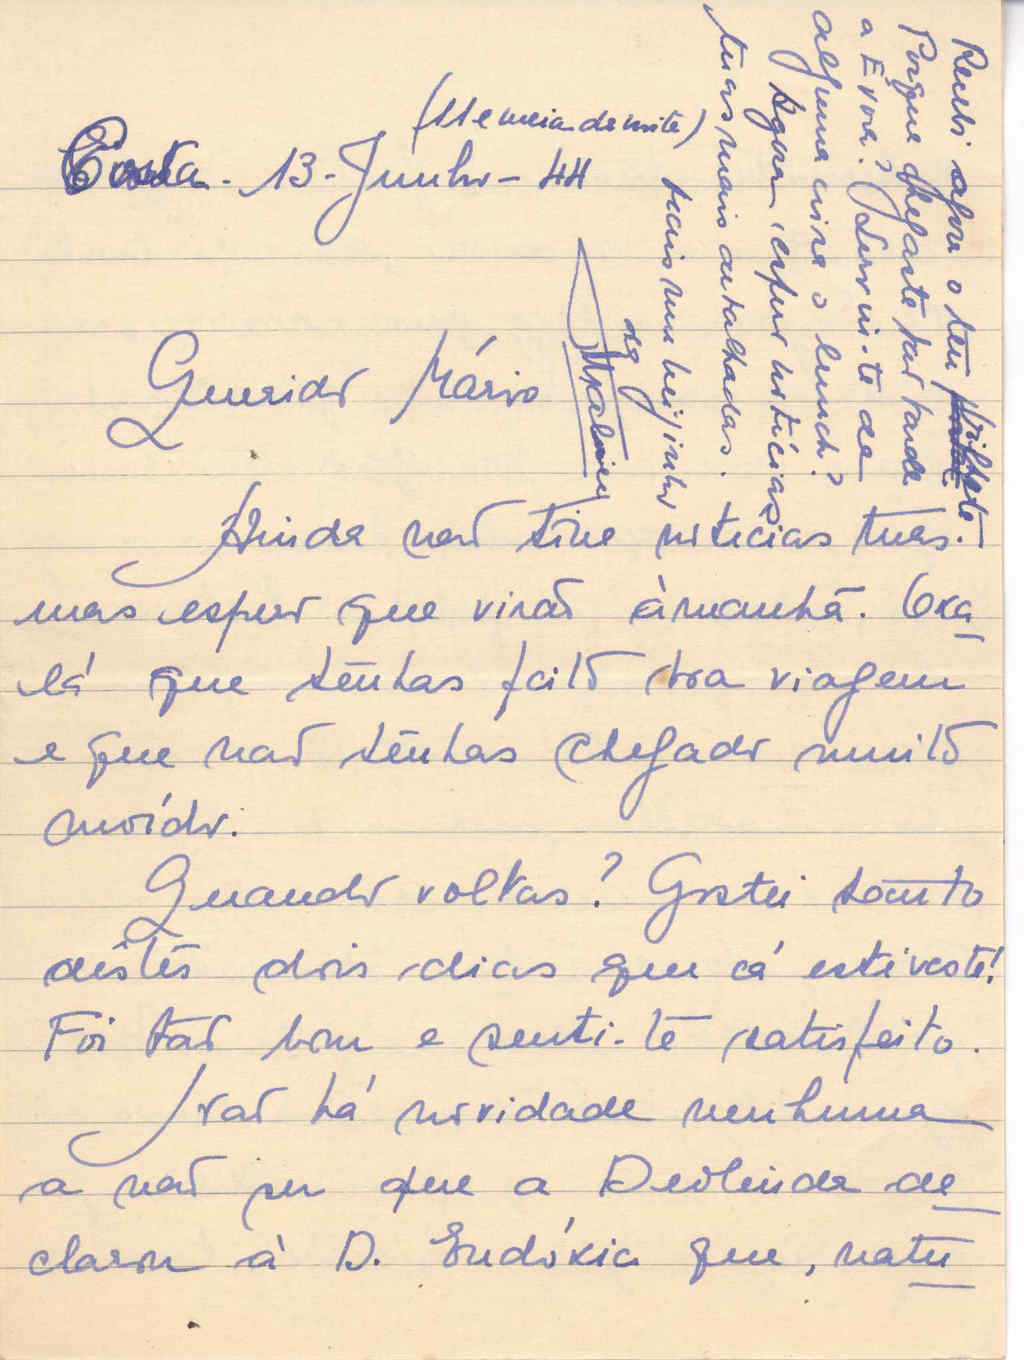 (11 e meia da noite)
Costa - 13 - Junho - 44
Querido Mário
Ainda não tive notícias tuas.
mas espero que virão àmanhã. Oxa
lá que tenhas feito boa viagem
e que não tenhas chegado muito
moído.
Quando voltas? Gostei tanto
destes dois dias que cá estiveste!
Foi tão bom e senti-te satisfeito.
Não há novidade nenhuma
a não ser que a Deolinda de
clarou à D. Eudóxia que, natu
Recebi agora o teu postal bilhete
Porque chegaste tão tarde
a Évora? Serviu-te de
alguma coisa o lunch?
Agora, espero notícias
tuas mais detalhadas.
mais um beijinho
da